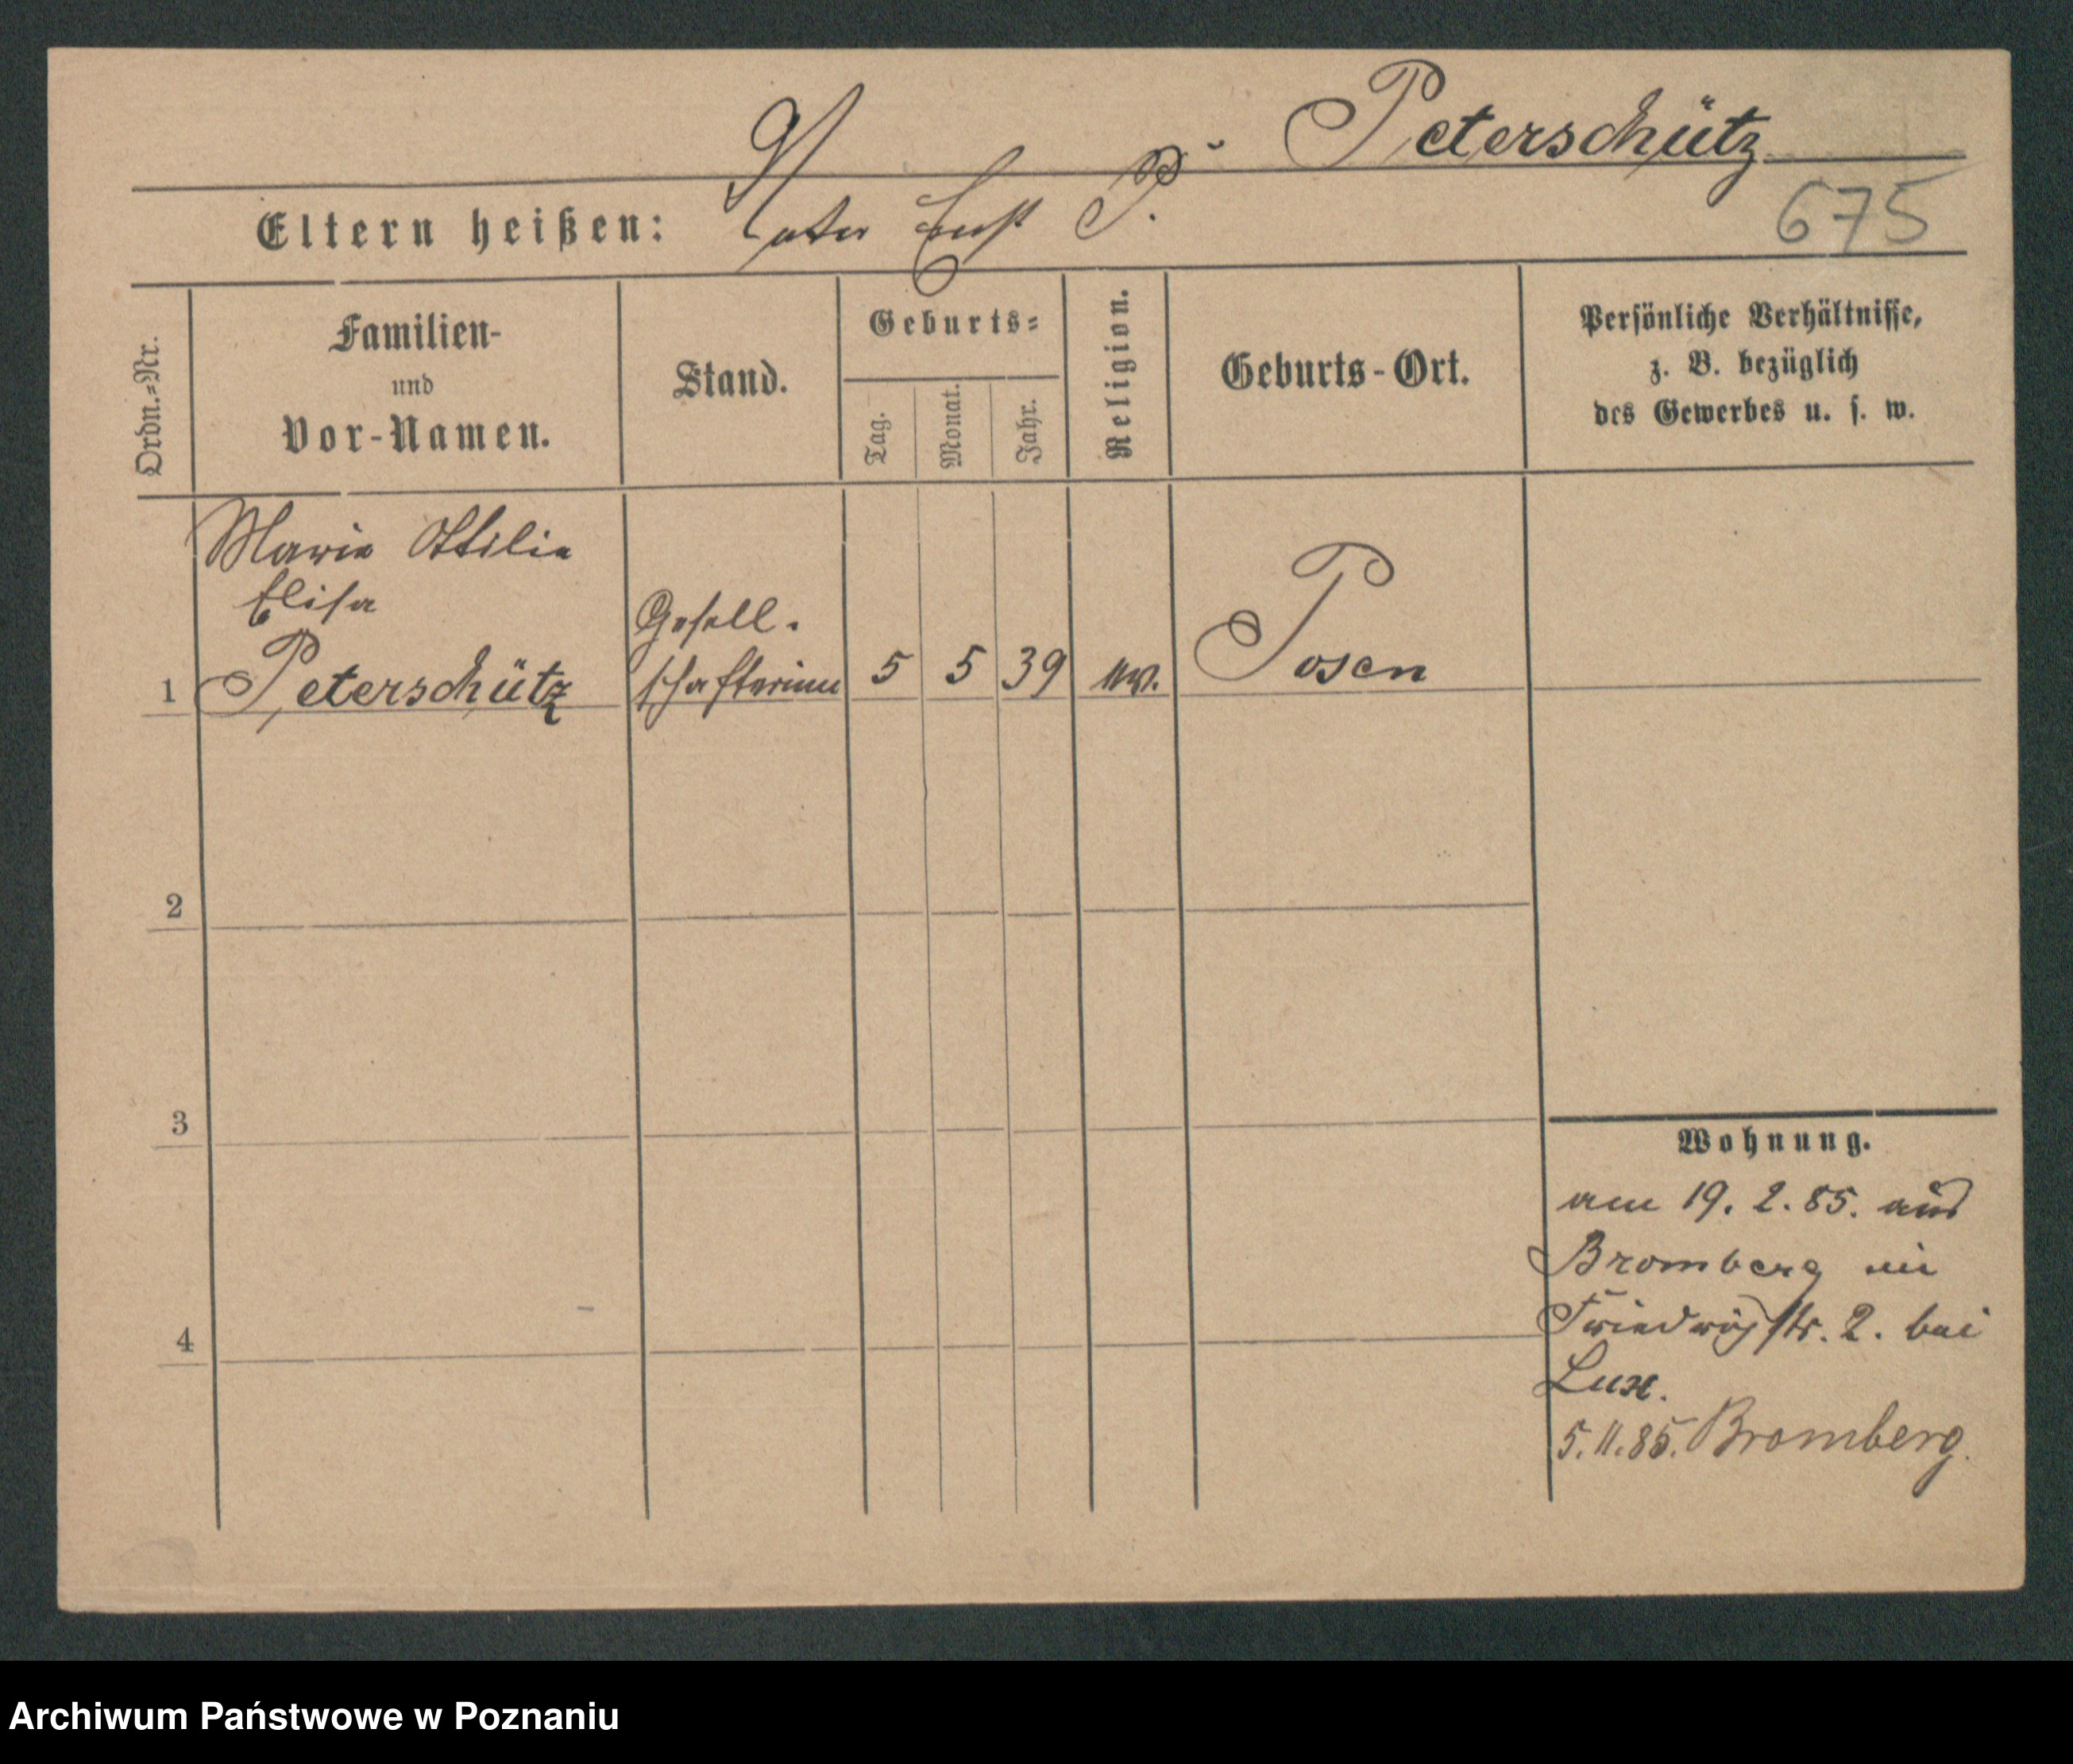 Peterschütz
Eltern heißen: Vater Ernst P.
675
Ordn.-Nr.
Familien-
und
Vor-Namen.
Stand.
Geburts-
Tag.
Monat.
Jahr.
Religion.
Geburts-Ort.
Persönliche Verhältnisse,
z. B. bezüglich
des Gewerbes u. s. w.
Marie Ottilie
Elisa
Peterschütz
Gesell-
schafterinn
1
5
5
39
ev.
Posen
2
3
4
Wohnung.
am 19. 2. 85. aus
Bromberg in
Friedrichstr. 2. bei
Lux.
5.11.85. Bromberg.
Archiwum Państwowe w Poznaniu